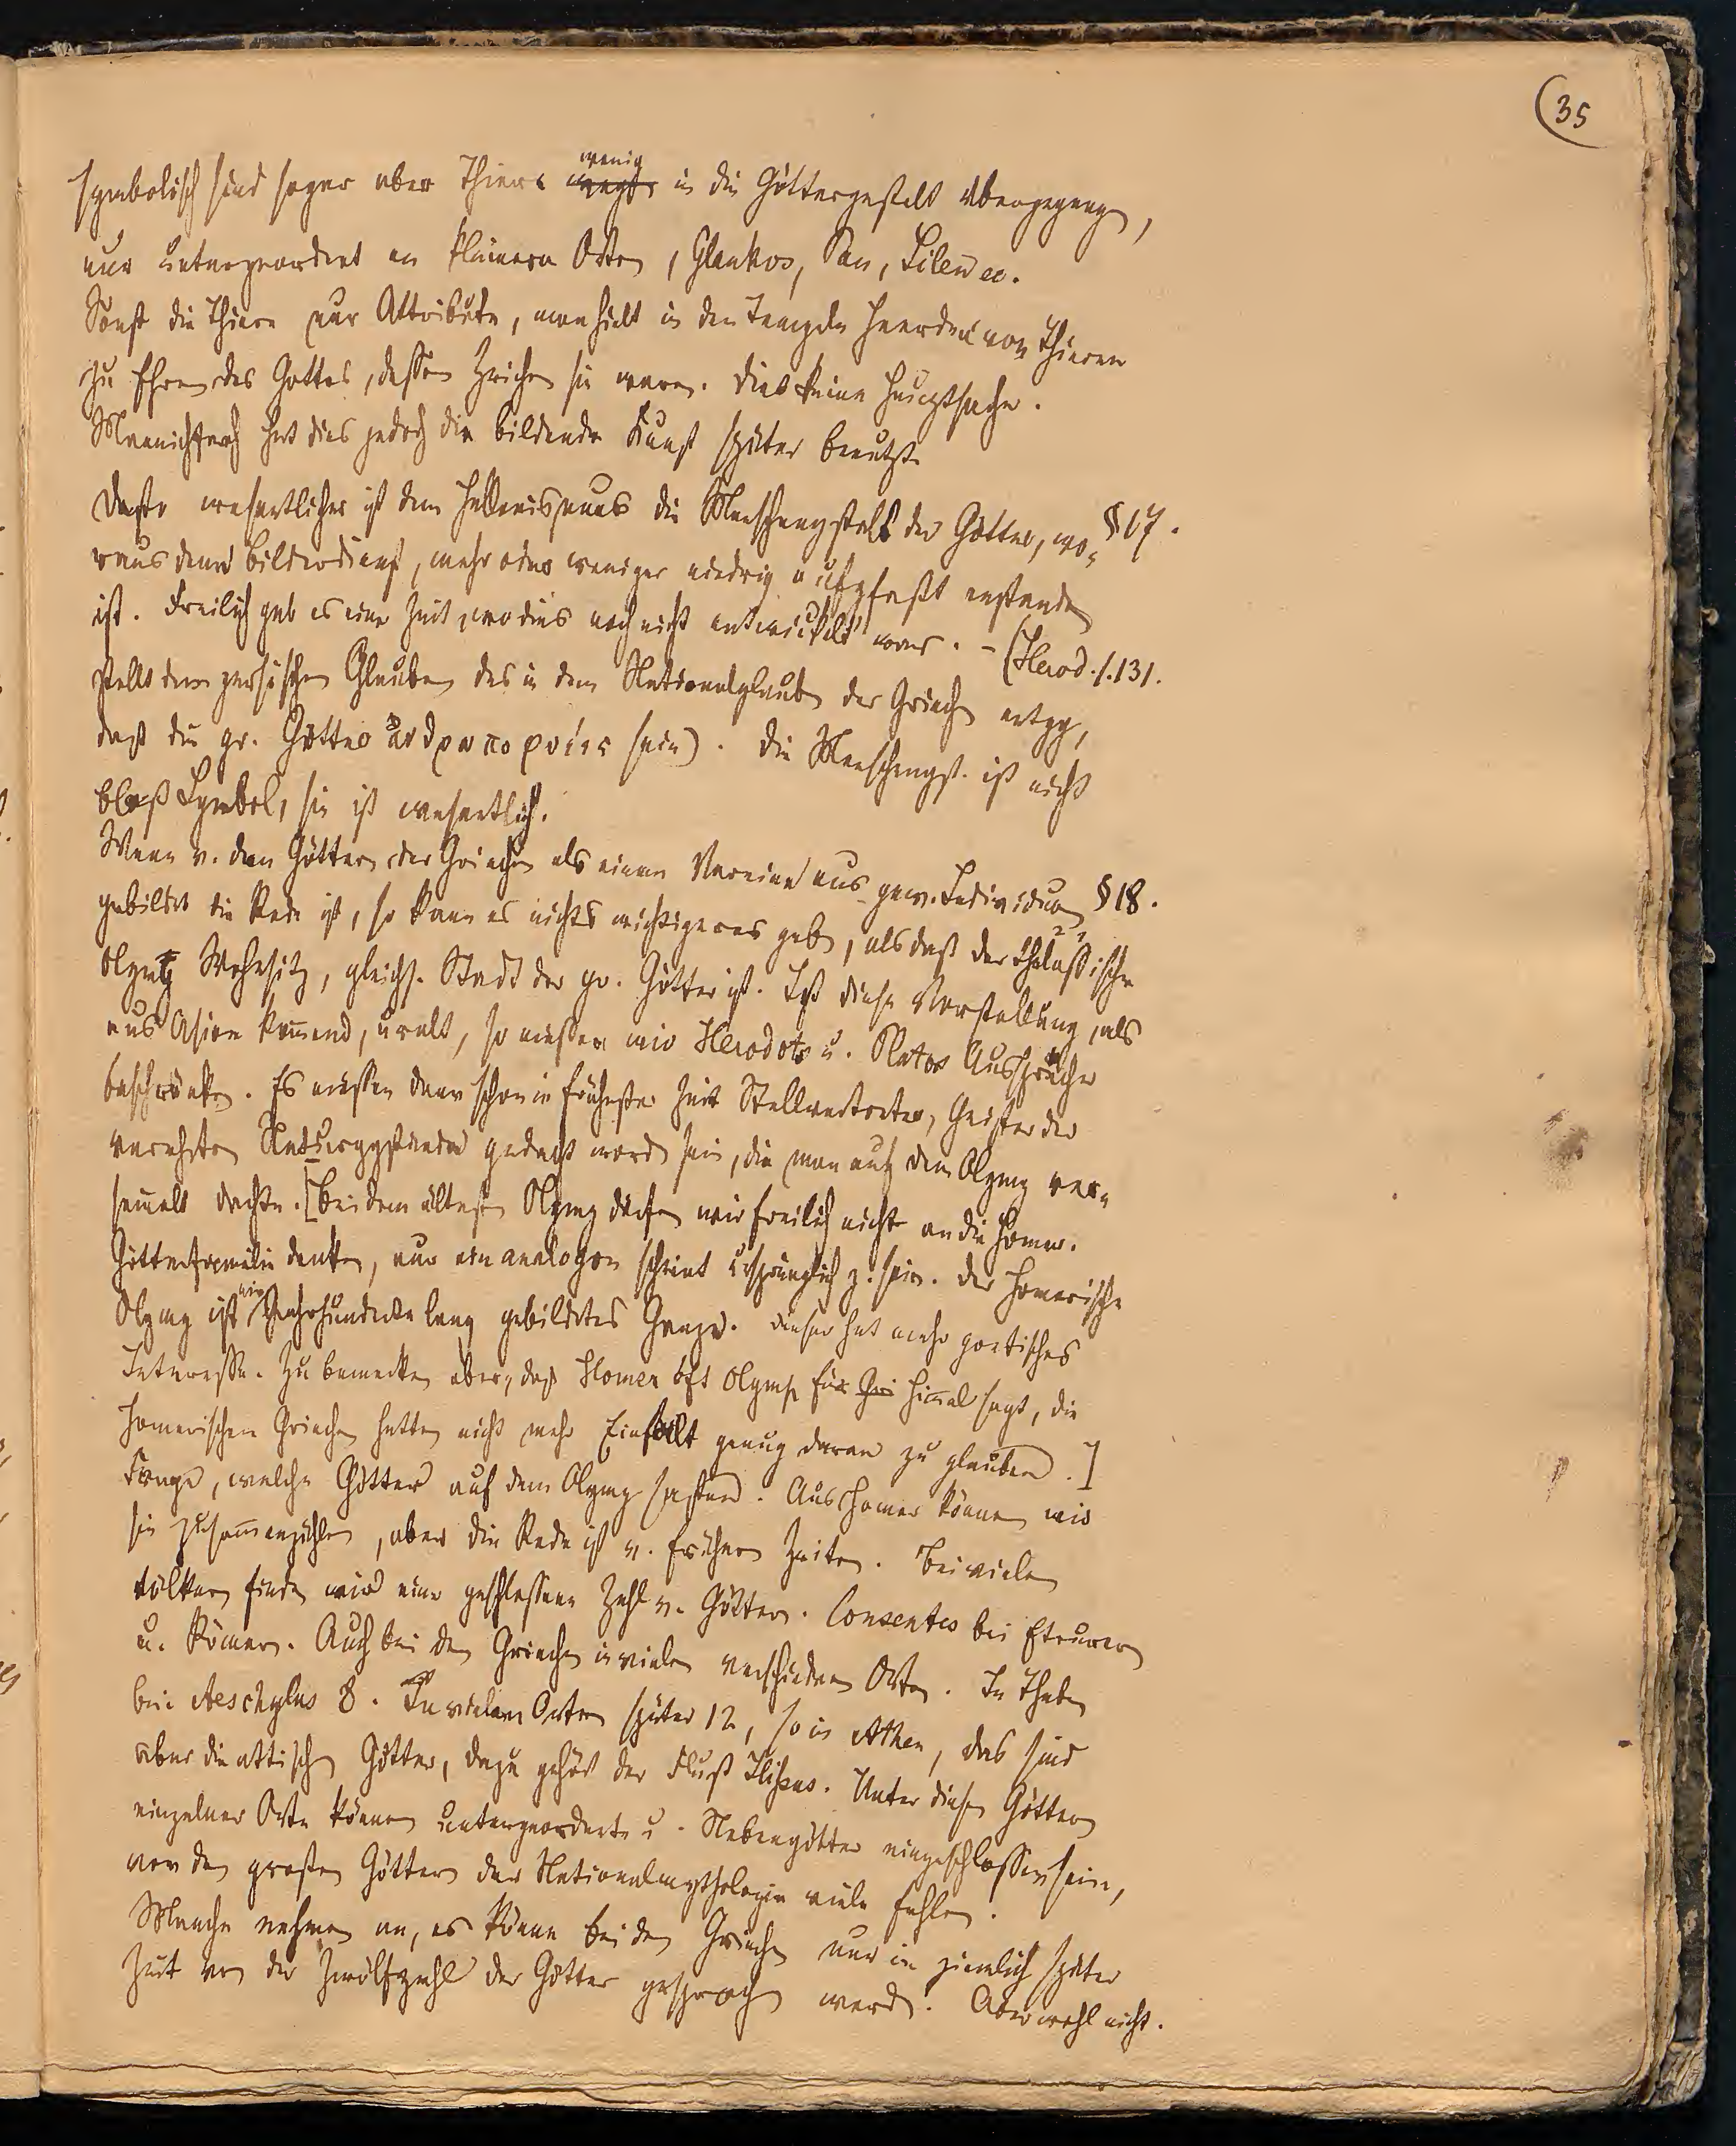 35
symbolisch sind sogar aber Thiere wenig in die Göttergestalt übergegangen,
nur untergeordnet an kleinern Orten, Glaukos, Pan, Silen ec.
Sonst die Thiere nur Attribute, man hielt in den Tempeln Heerden von Thieren
zu Ehren des Gottes, dessen Zeichen sie waren. Dies keine Hauptsache.
Mannichfach hat dies jedoch die bildende Kunst später benutzt.
Desto wesentlicher ist dem Hellenismus die Menschengestalt der Götter, wo- §17.
raus dann Bilderdienst, mehr oder weniger niedrig aufgefaßt enstanden
ist. Freilich gab es eine Zeit, wo dies noch nicht entwickelt war. - (Herod. 1.131.
stellt dem persischen Glauben das in dem Nationalglauben der Griechen entgg,
daß die gr. Götter ἀνθρωποφυέες sein). Die Menschengst. ist nicht
bloß Symbol, sie ist wesentlich.
Wenn v. den Göttern der Griechen als einem Vereine aus gew. Individuen §18.
gebildet die Rede ist, so kann es nichts wichtigeres geben, als daß der theßalische
Olymp Wohnsitz, gleichs. Stadt der gr. Götter ist. Ist diese Vorstellung, als
aus Asien kommend, uralt, so müssen wir Herodots u. Platos Aussprüche
beschränken. Es müssen dann schon in frühester Zeit Stellvertreter, Geister der
verehrten Naturggstände gedacht word sein, die man auf dem Olymp ver-
samelt dachte. [Bei dem ältesten Olymp dürfen wir freilich nicht an die Homer.
Götterfamilie denken, nur ein analogon scheint ursprünglich z. sein. Der Homerische
Olymp ist ein Jahrhunderte lang gebildetes Ganze. Dieser hat mehr poetisches
Interesse. Zu bemerken aber, daß Homer oft Olymp für Gri Himel sagt, die
Homerischen Griechen hatten nicht mehr Einfalt genug daran zu glauben.]
Frage, welche Götter auf dem Olymp saßen. Aus Homer können wir
sie zusammenzählen, aber die Rede ist v. frühern Zeiten. Bei vielen
Völkern finden wir eine geschlossene Zahl v. Göttern. Consentes bei Etrurern
u. Römern. Auch bei den Griechen in vielen verschiednen Orten. In Theben
bei Aeschylus 8. In vielen Orten später 12, so in Athen, das sind
aber die attischen Götter, dazu gehört der Fluß Ilissus. Unter diesen Göttern
einzelner Orte können untergeordnete u. Nebengötter eingeschlossen sein,
von den großen Göttern der Nationalmythologie viele fehlen.
Manche nehmen an, es könne bei den Griechen nur in ziemlich später
Zeit von der Zwölfzahl der Götter gesprochen werd. Aber wohl nicht.